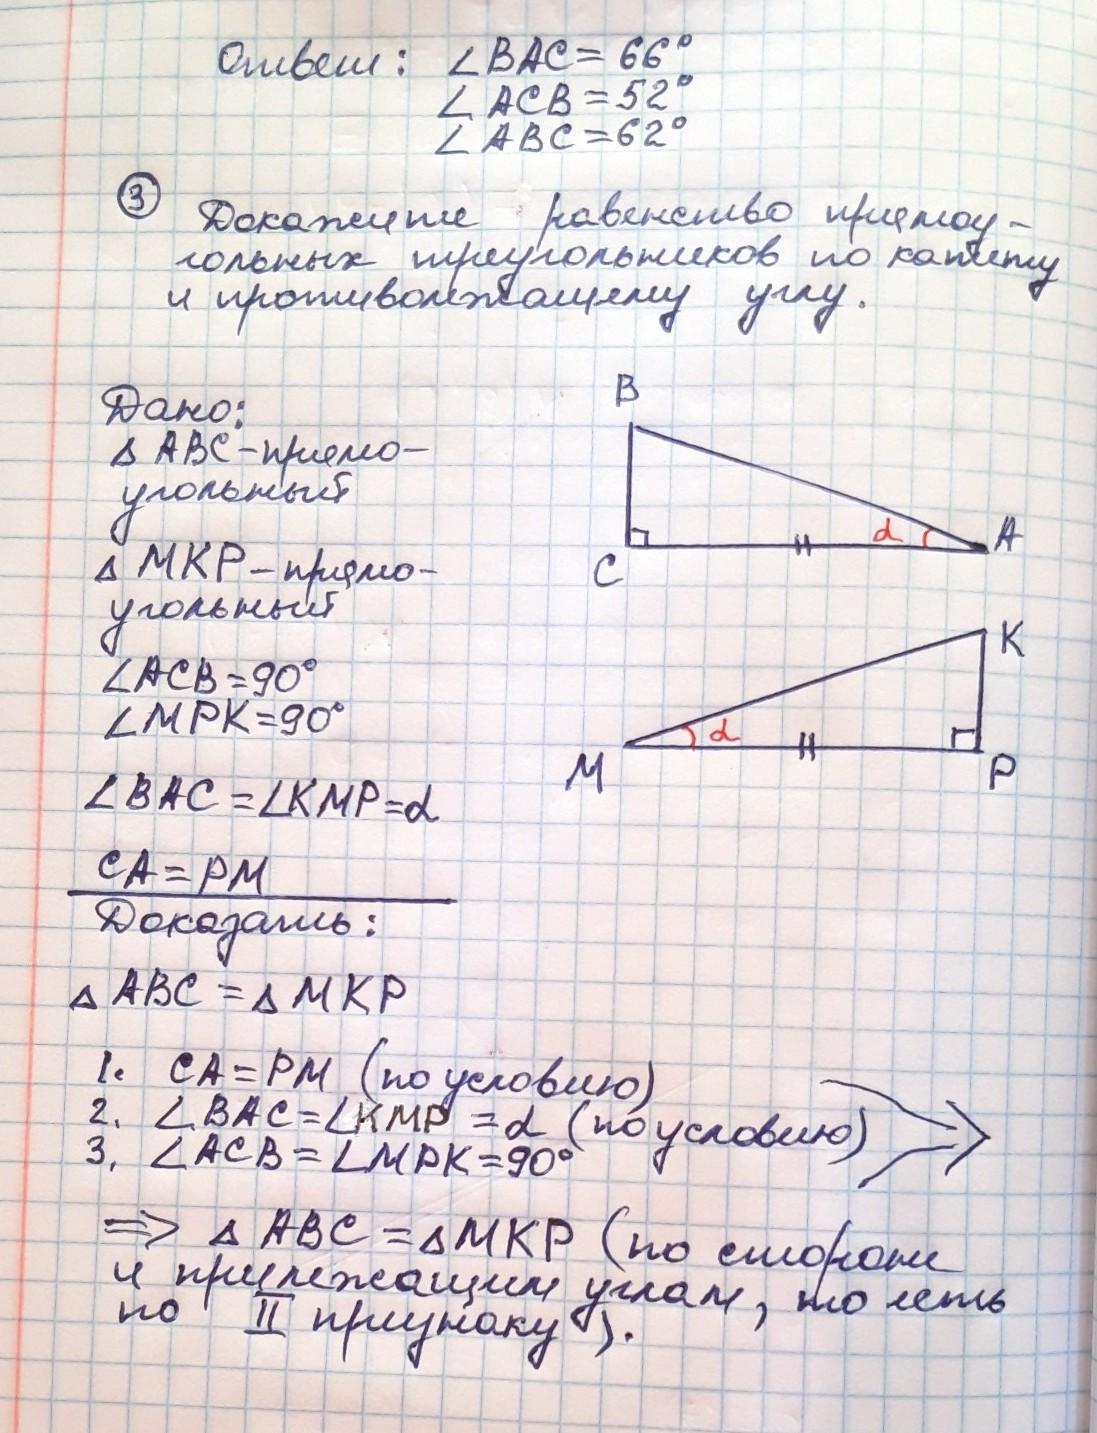 Ответ: ∠BAC = 66°
∠ACB = 52°
∠ABC = 62°
③ Докажите равенство прямоу-
гольных треугольников по катету
и противолежащему углу.
Дано:
△ABC - прямо-
угольный
△MKP - прямо-
угольный
∠ACB = 90°
∠MPK = 90°
∠BAC = ∠KMP = α
CA = PM
Доказать:
△ABC = △MKP
B
C
α
A
K
M
α
P
1. CA = PM (по условию)
2. ∠BAC = ∠KMP = α (по условию)
3. ∠ACB = ∠MPK = 90°
=> △ABC = △MKP (по стороне
и прилежащим углам, то есть
по II признаку).